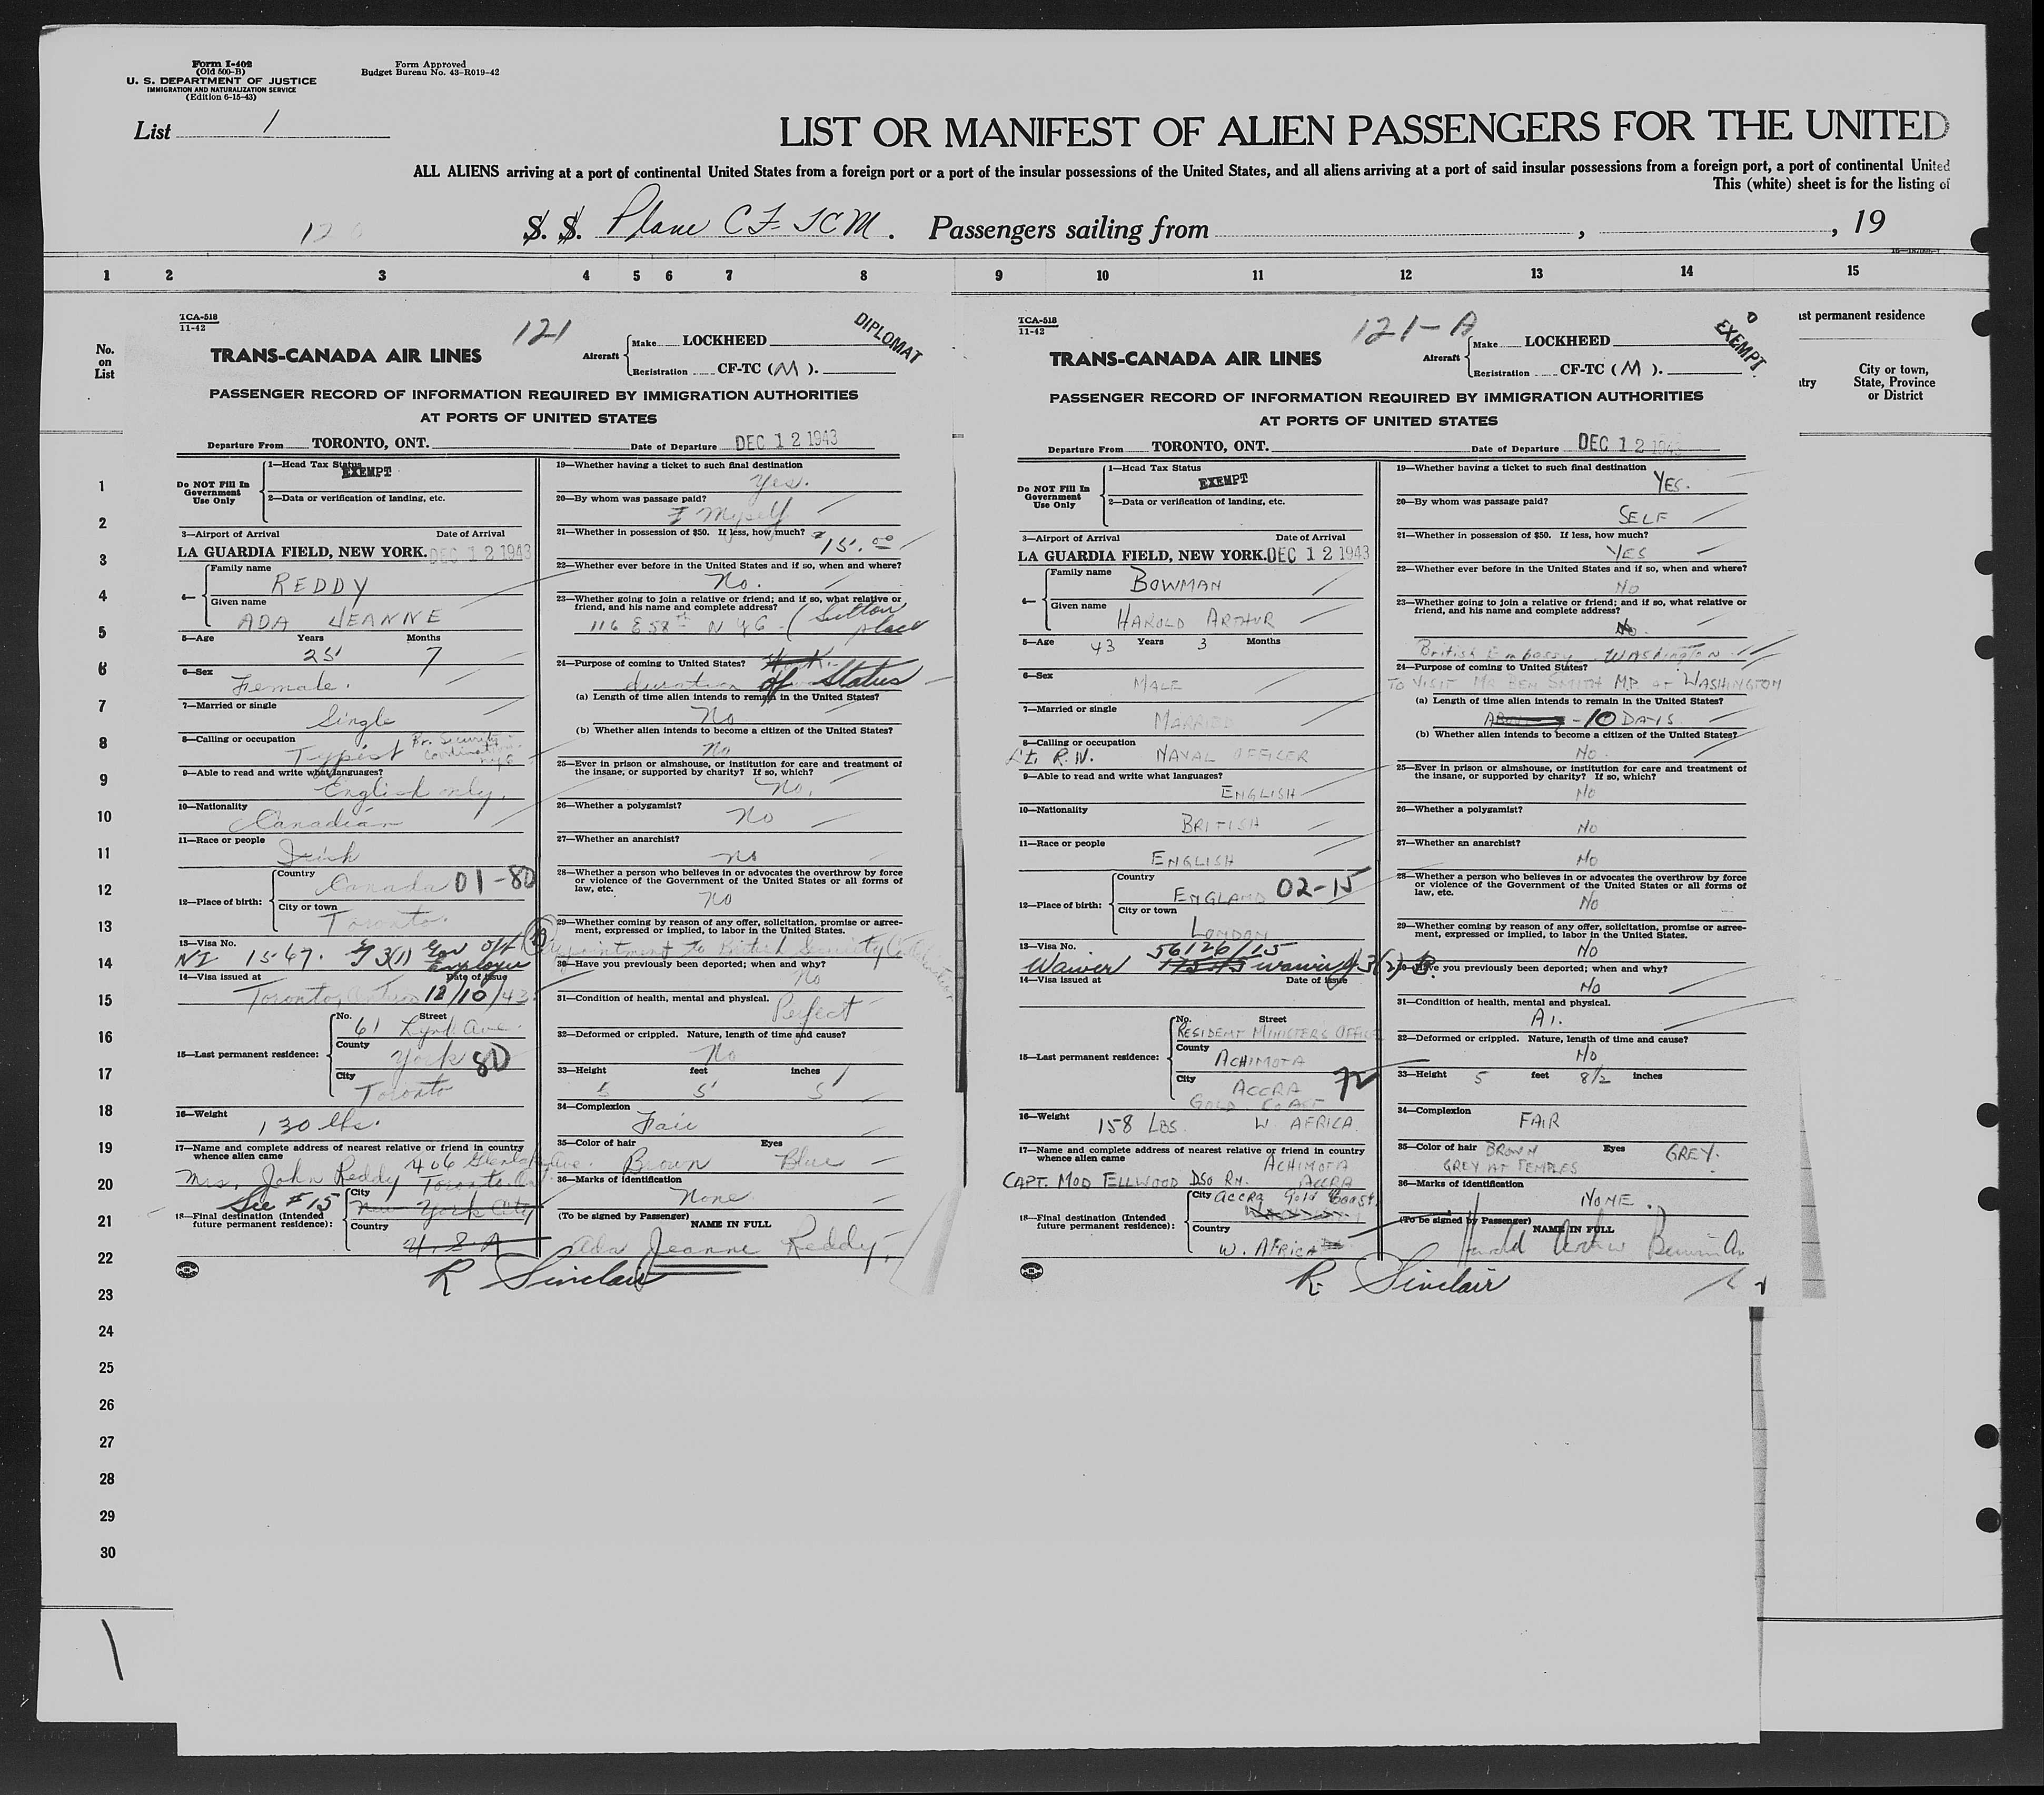 Form I-402
(Old 500-B)
U. S. DEPARTMENT OF JUSTICE
IMMIGRATION AND NATURALIZATION SERVICE
(Edition 6-15-43)
Form Approved
Budget Bureau No. 43-R019-42
List 1
LIST OR MANIFEST OF ALIEN PASSENGERS FOR THE UNITED
ALL ALIENS arriving at a port of continental United States from a foreign port or a port of the insular possessions of the United States, and all aliens arriving at a port of said insular possessions from a foreign port, a port of continental United
This (white) sheet is for the listing of
S. S. Plane CF-TCM. Passengers sailing from , , 19
1 2 3 4 5 6 7 8 9 10 11 12 13 14 15
No.
on
List
1
2
3
4
5
6
7
8
9
10
11
12
13
14
15
16
17
18
19
20
21
22
23
24
25
26
27
28
29
30
TCA-518
11-42
121
DIPLOMAT
TRANS-CANADA AIR LINES
Aircraft
Make LOCKHEED
Registration CF-TC (M).
PASSENGER RECORD OF INFORMATION REQUIRED BY IMMIGRATION AUTHORITIES
AT PORTS OF UNITED STATES
Departure From TORONTO, ONT. Date of Departure DEC 12 1943
Do NOT Fill In
Government
Use Only
1—Head Tax Status EXEMPT
2—Data or verification of landing, etc.
3—Airport of Arrival Date of Arrival
LA GUARDIA FIELD, NEW YORK. DEC 12 1943
4—
Family name
REDDY
Given name
ADA JEANNE
5—Age Years Months
25 7
6—Sex
Female.
7—Married or single
Single
8—Calling or occupation
Typist Br. Security Coordination NYC
9—Able to read and write what languages?
English only.
10—Nationality
Canadian
11—Race or people
Irish
12—Place of birth:
Country
Canada 01-80
City or town
Toronto.
13—Visa No.
NI 1567. 3(1) Gov Off Employee
14—Visa issued at Date of issue
Toronto, 12/10/43
15—Last permanent residence:
No. Street
61 Lynd Ave.
County
York 80
City
Toronto
16—Weight
130 lbs.
17—Name and complete address of nearest relative or friend in country
whence alien came
Mrs. John Reddy 406 Ave. Toronto
See #15
18—Final destination (Intended
future permanent residence):
City
New York City
Country
U.S.A
19—Whether having a ticket to such final destination
Yes.
20—By whom was passage paid?
Myself
21—Whether in possession of $50. If less, how much?
$15.00
22—Whether ever before in the United States and if so, when and where?
No.
23—Whether going to join a relative or friend; and if so, what relative or
friend, and his name and complete address?
116 E 58th N Y C - (Sutton place
24—Purpose of coming to United States? Work.
duration of Status
(a) Length of time alien intends to remain in the United States?
No
(b) Whether alien intends to become a citizen of the United States?
No
25—Ever in prison or almshouse, or institution for care and treatment of
the insane, or supported by charity? If so, which?
No.
26—Whether a polygamist?
No
27—Whether an anarchist?
No
28—Whether a person who believes in or advocates the overthrow by force
or violence of the Government of the United States or all forms of
law, etc.
No
29—Whether coming by reason of any offer, solicitation, promise or agree-
ment, expressed or implied, to labor in the United States.
Appointment to British Security Coordination
30—Have you previously been deported; when and why?
No
31—Condition of health, mental and physical.
Perfect
32—Deformed or crippled. Nature, length of time and cause?
No
33—Height feet inches
5 5 5
34—Complexion
Fair
35—Color of hair Eyes
Brown Blue
36—Marks of identification
None
(To be signed by Passenger) NAME IN FULL
Ada Jeanne Reddy.
R Sinclair
TCA-518
11-42
121-A
EXEMPT
TRANS-CANADA AIR LINES
Aircraft
Make LOCKHEED
Registration CF-TC (M).
PASSENGER RECORD OF INFORMATION REQUIRED BY IMMIGRATION AUTHORITIES
AT PORTS OF UNITED STATES
Departure From TORONTO, ONT. Date of Departure DEC 12 1943
Do NOT Fill In
Government
Use Only
1—Head Tax Status
EXEMPT
2—Data or verification of landing, etc.
3—Airport of Arrival Date of Arrival
LA GUARDIA FIELD, NEW YORK. DEC 12 1943
4—
Family name
BOWMAN
Given name
HAROLD ARTHUR
5—Age 43 Years 3 Months
6—Sex
MALE
7—Married or single
MARRIED
8—Calling or occupation
Lt. R.N. NAVAL OFFICER
9—Able to read and write what languages?
ENGLISH
10—Nationality
BRITISH
11—Race or people
ENGLISH
12—Place of birth:
Country
ENGLAND 02-15
City or town
LONDON
13—Visa No. 56126/15
Waiver waiver 3(2)
14—Visa issued at Date of issue
15—Last permanent residence:
No. Street
RESIDENT MINISTERS OFFICE
County
ACHIMOTA
City
ACCRA 72
GOLD COAST
16—Weight 158 LBS. W. AFRICA
17—Name and complete address of nearest relative or friend in country
whence alien came ACHIMOTA
CAPT. MOD ELLWOOD DSO RN. ACCRA
18—Final destination (Intended
future permanent residence):
City Accra Gold Coast
Country
W. AFRICA
19—Whether having a ticket to such final destination
YES.
20—By whom was passage paid?
SELF
21—Whether in possession of $50. If less, how much?
YES
22—Whether ever before in the United States and if so, when and where?
No
23—Whether going to join a relative or friend; and if so, what relative or
friend, and his name and complete address?
No.
British Embassy Washington
24—Purpose of coming to United States?
TO VISIT MR BEN SMITH M.P. AT WASHINGTON
(a) Length of time alien intends to remain in the United States?
- 10 DAYS
(b) Whether alien intends to become a citizen of the United States?
No.
25—Ever in prison or almshouse, or institution for care and treatment of
the insane, or supported by charity? If so, which?
No
26—Whether a polygamist?
No
27—Whether an anarchist?
No
28—Whether a person who believes in or advocates the overthrow by force
or violence of the Government of the United States or all forms of
law, etc.
No
29—Whether coming by reason of any offer, solicitation, promise or agree-
ment, expressed or implied, to labor in the United States.
No
30—Have you previously been deported; when and why?
No
31—Condition of health, mental and physical.
A1.
32—Deformed or crippled. Nature, length of time and cause?
No
33—Height 5 feet 8 1/2 inches
34—Complexion
FAIR
35—Color of hair BROWN Eyes GREY.
GREY AT TEMPLES
36—Marks of identification
NONE.
(To be signed by Passenger) NAME IN FULL
Harold Arthur Bowman
R. Sinclair
ast permanent residence
City or town,
State, Province
or District